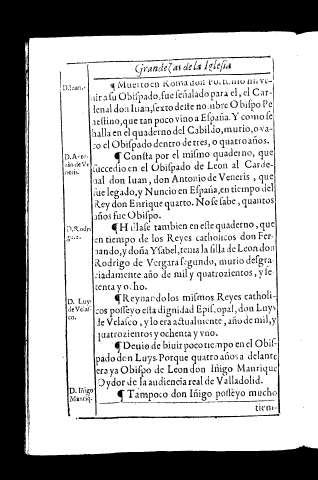 Grandezas de la Iglesia
D. Iuan.
¶ Muerto en Roma don
nir a su Obispado, fue señalado para el, el Car-
denal don Iuan, sexto deste nombre Obispo Pe
nestino, que tan poco vino a España. Y como se
halla en el quaderno del Cabildo, murio, o va-
co el Obispado dentro de tres, o quatro años.
D. Anto-
nio de Ve
neris.
¶ Consta por el mismo quaderno, que
succedio en el Obispado de Leon al Carde-
nal don Iuan, don Antonio de Veneris, que
fue legado, y Nuncio en España, en tiempo del
Rey don Enrique quarto. No se sabe, quantos
años fue Obispo.
D. Rodri
¶ Hallase tambien en este quaderno, que
en tiempo de los Reyes catholicos don Fer-
nando, y doña Ysabel, tenia la silla de Leon don
Rodrigo de Vergara segundo, murio desgra-
ciadamente año de mil y quatrozientos, y se-
tenta y ocho.
D. Luys
de Velas
co.
¶ Reynando los mismos Reyes catholi-
cos posseyo esta dignidad Episcopal, don Luys
de Velasco, y lo era actualmente, año de mil, y
quatrozientos y ochenta y vno.
¶ Deuio de biuir poco tiempo en el Obis-
pado don Luys. Porque quatro años a delante
era ya Obispo de Leon don Iñigo Manrique
Oydor de la audiencia real de Valladolid.
D. Iñigo
Manriq.
¶ Tampoco don Iñigo posseyo mucho
tiem-